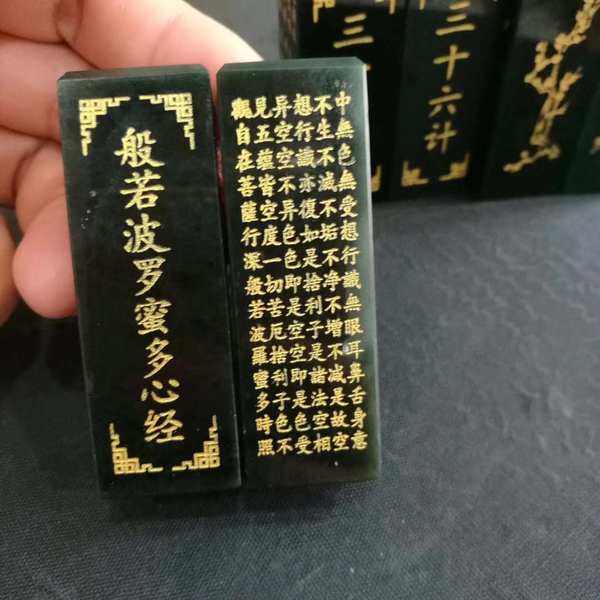 般若波罗蜜多心经
觀自在菩薩行深般若波羅蜜多時照
見五蘊皆空度一切苦厄捨利子色不
异空空不异色色即是空空即是色受
想行識亦復如是捨利子是諸法空相
不生不滅不垢不净不增不减是故空
中無色無受想行識無眼耳鼻舌身意
三
三十六计